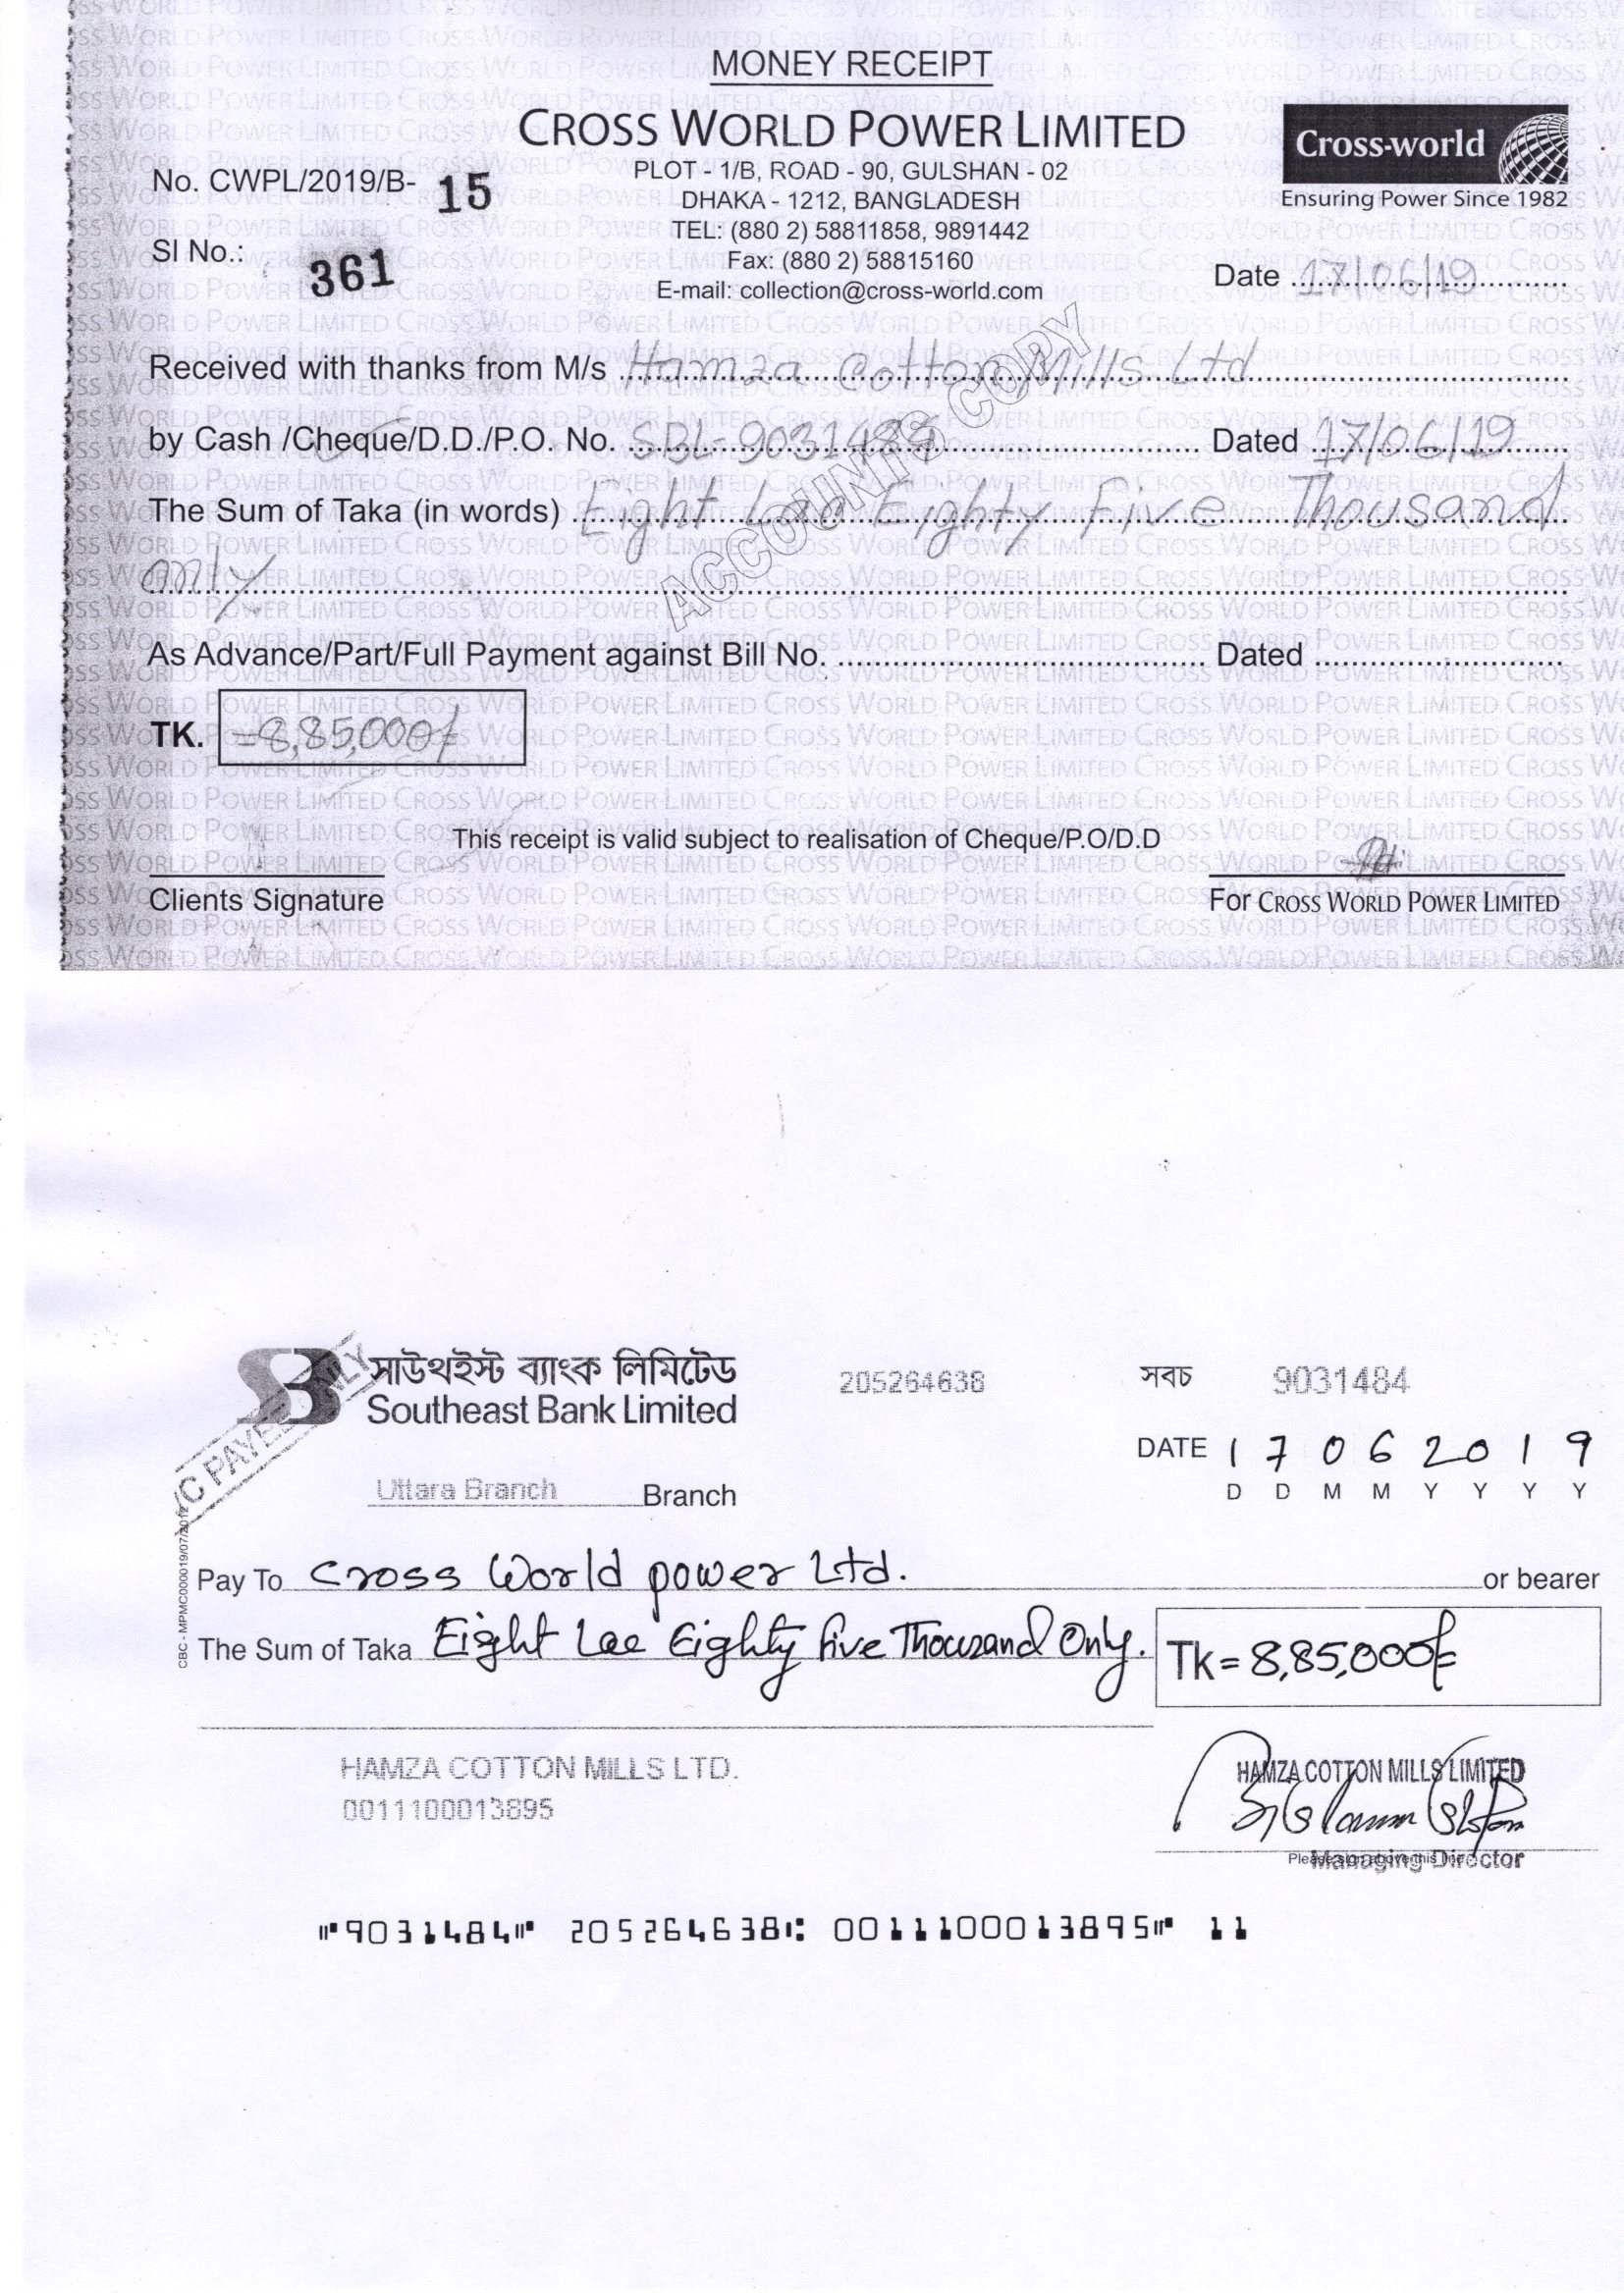 MONEY RECEIPT
CROSS WORLD POWER LIMITED
Cross-world
Ensuring Power Since 1982
PLOT - 1/B, ROAD - 90, GULSHAN - 02
DHAKA - 1212, BANGLADESH
TEL: (880 2) 58811858, 9891442
Fax: (880 2) 58815160
E-mail: collection@cross-world.com
No. CWPL/2019/B- 15
Sl No.: 361
Date 17/06/19
Received with thanks from M/s Hamza Cotton Mills Ltd
by Cash /Cheque/D.D./P.O. No. SBL-9031484 Dated 17/06/19
The Sum of Taka (in words) Eight Lac Eighty Five Thousand
only
ACCOUNTS COPY
As Advance/Part/Full Payment against Bill No. Dated
TK. =8,85,000/=
This receipt is valid subject to realisation of Cheque/P.O/D.D
Clients Signature
For CROSS WORLD POWER LIMITED
সাউথইস্ট ব্যাংক লিমিটেড
Southeast Bank Limited
205264638
সবচ 9031484
DATE 17062019
D D M M Y Y Y Y
Uttara Branch Branch
A/C PAYEE ONLY
Pay To Cross World power Ltd. or bearer
The Sum of Taka Eight Lac Eighty five Thousand Only.
Tk = 8,85,000/=
HAMZA COTTON MILLS LTD.
0011100013895
HAMZA COTTON MILLS LIMITED
Please sign above this line
Managing Director
9031484 205264638 0011100013895 11